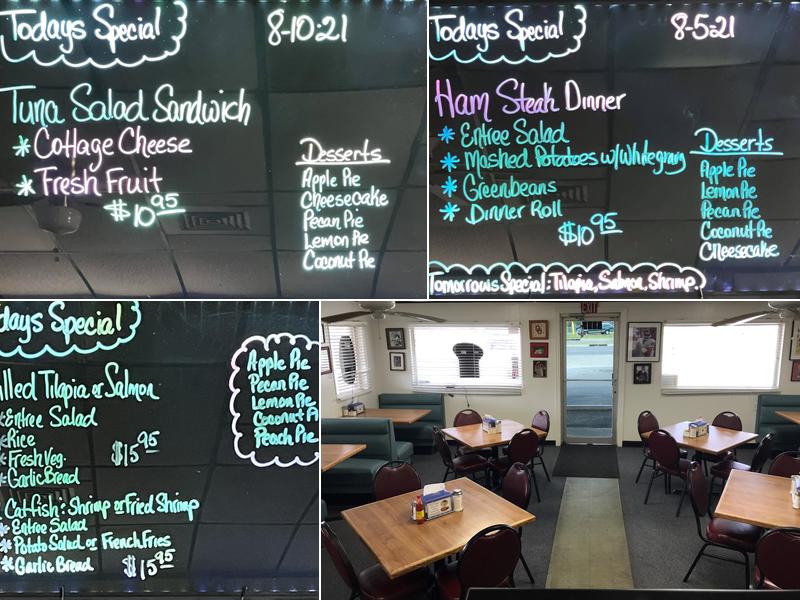 Todays Special
8-10-21
Tuna Salad Sandwich
* Cottage Cheese
* Fresh Fruit
$10.95
Desserts
Apple Pie
Cheesecake
Pecan Pie
Lemon Pie
Coconut Pie
Todays Special
8-5-21
Ham Steak Dinner
* Entree Salad
* Mashed Potatoes w/White gravy
* Greenbeans
* Dinner Roll
$10.95
Desserts
Apple Pie
Lemon Pie
Pecan Pie
Coconut Pie
Cheesecake
Tomorrows Special: Tilapia, Salmon, Shrimp.
days Special
lled Tilapia or Salmon
* Entree Salad
* Rice
* Fresh Veg.
* Garlic Bread
$15.95
Catfish: Shrimp or Fried Shrimp
* Entree Salad
* Potato Salad or French Fries
* Garlic Bread
$15.95
Apple Pie
Pecan Pie
Lemon Pie
Coconut P
Peach Pie
EXIT